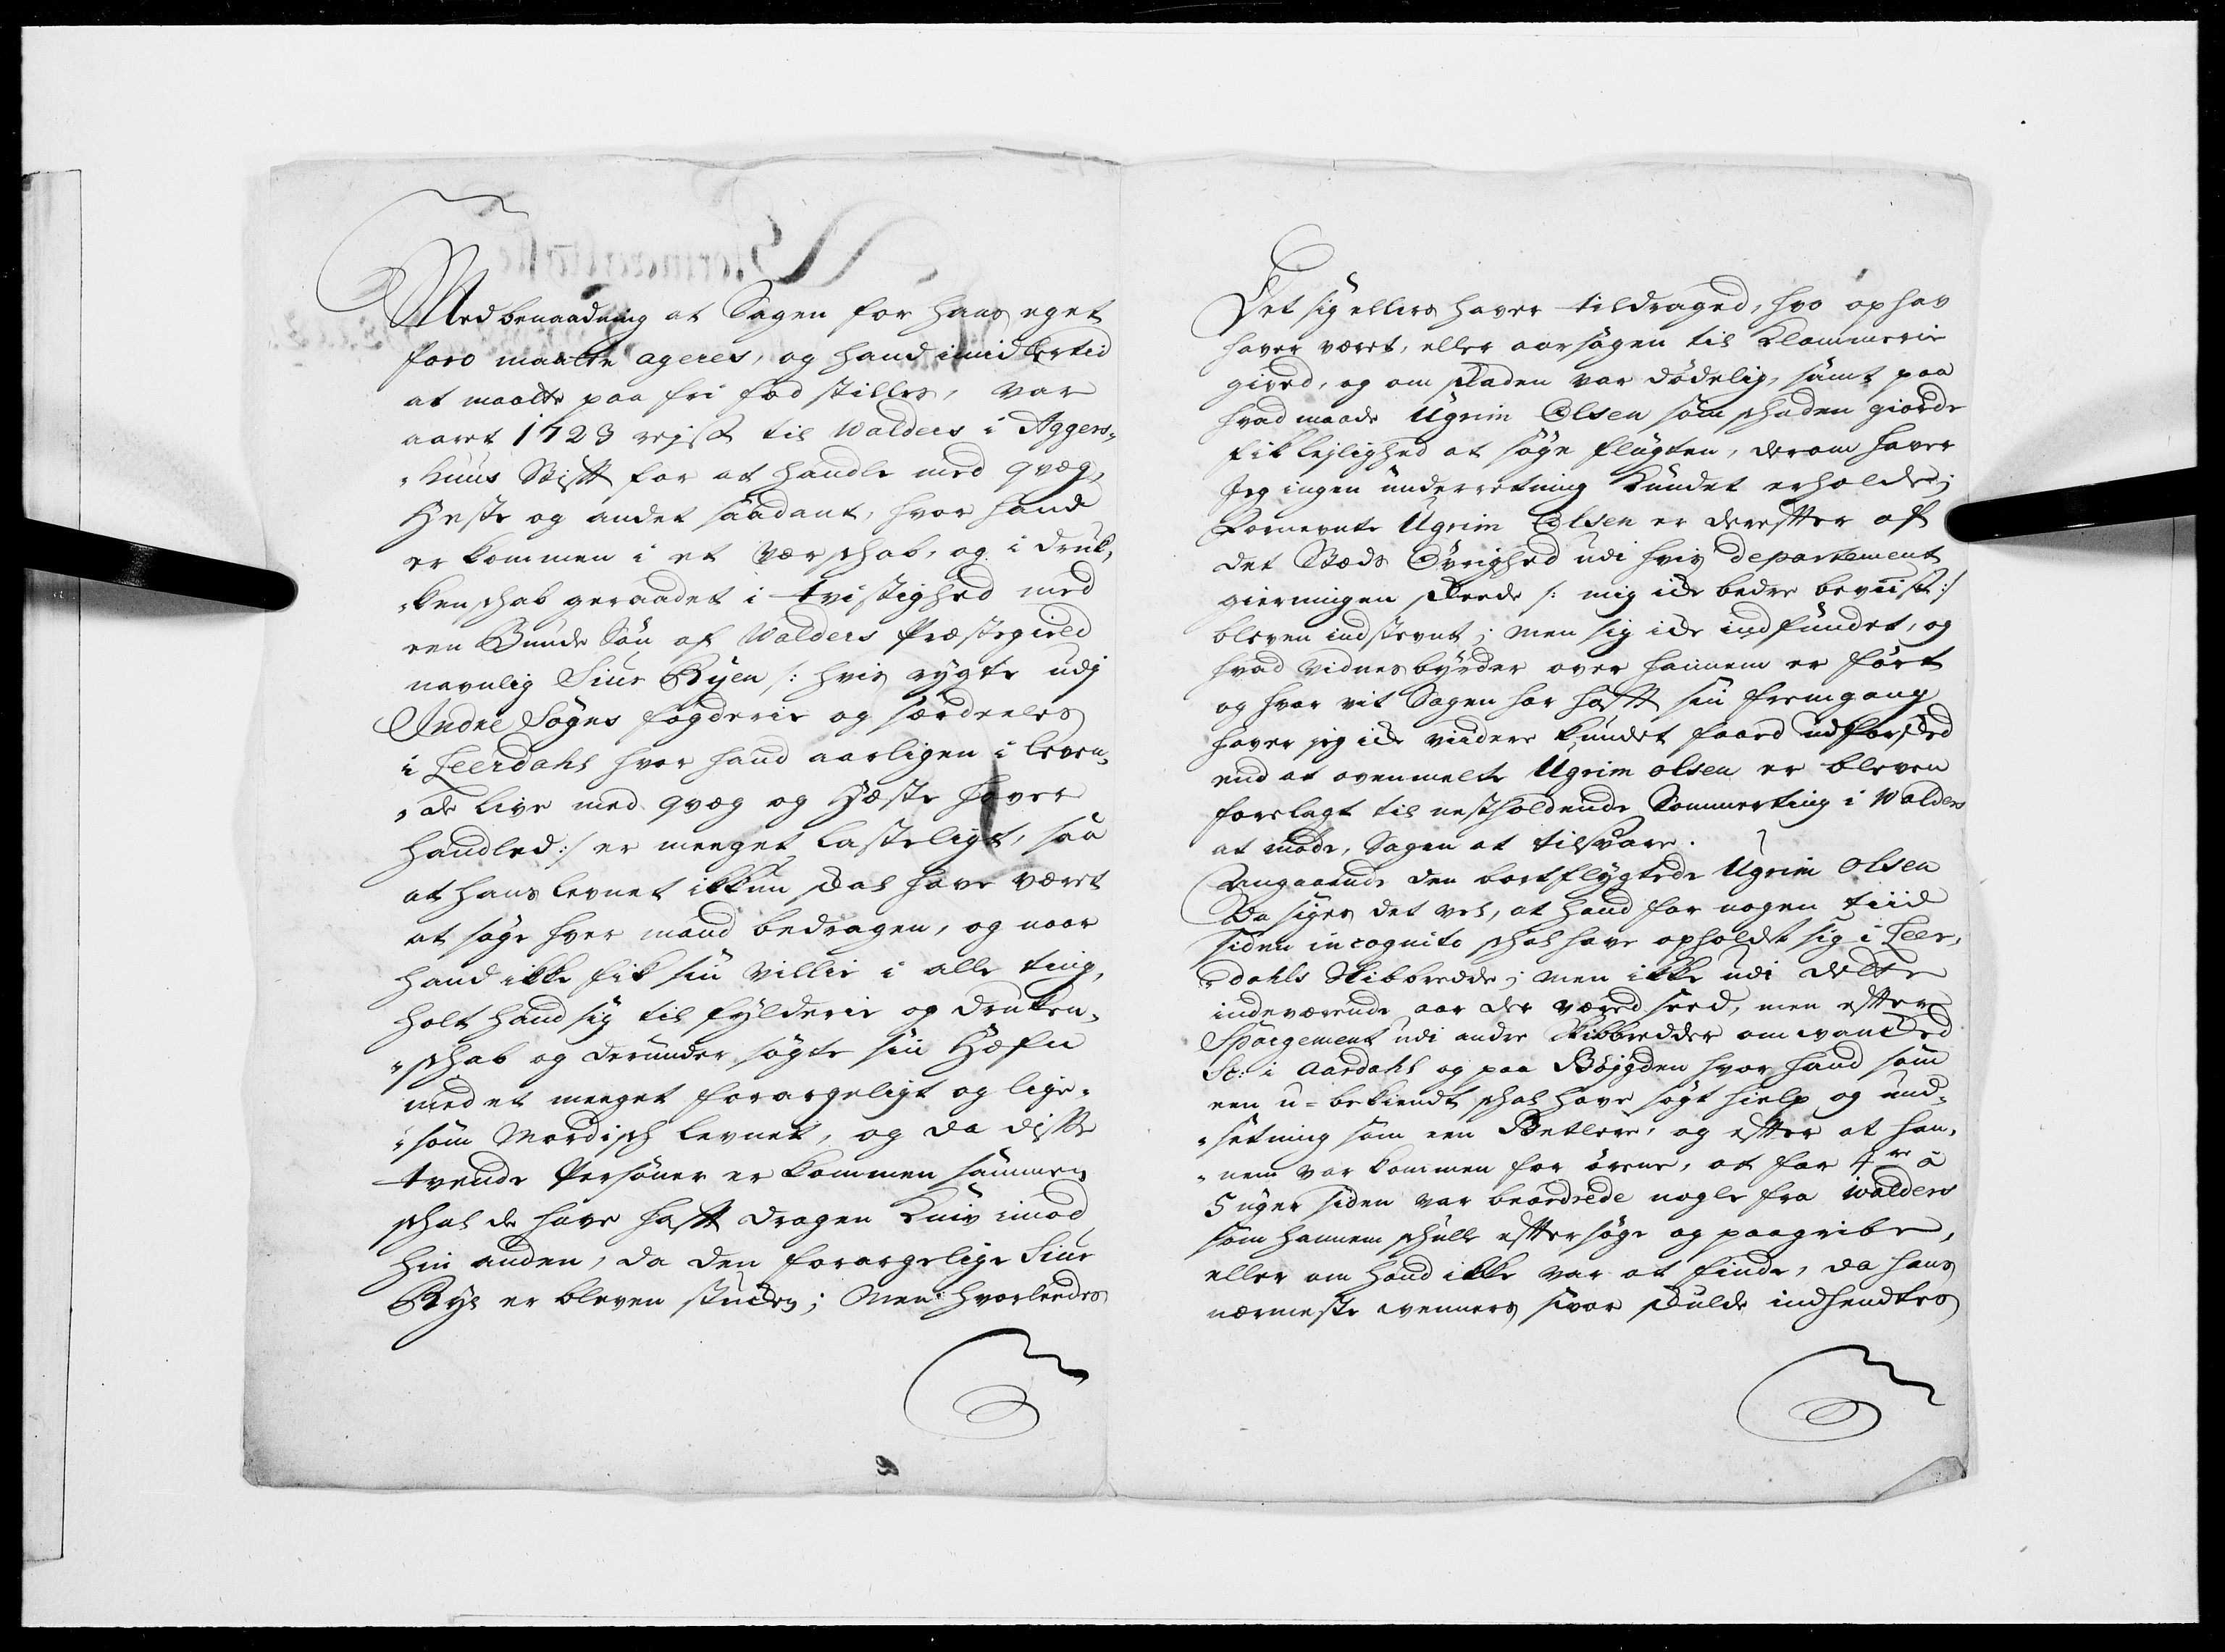 Med benaadning at Sagen for hans eget
foro maatte ageres, og hand imidlertid
at maatte paa fri fod stilles, var
aaret 1723 rejst til Walders i Aggers-
huus Stift for at handle med qvæg,
Heste og andet saadant, hvor hand
er kommen i et værschab, og i druk-
kenschab geraadet i tvistighed med
een Bunde Søn af Walders Præstegield
navnlig Siur Ryen /: hvis rygte udj
Indre Sogns fogderie og særdeeles
i Leerdahl hvor hand aarligen i leven-
de live med qvæg og Hæste haver
handled :/ er meeget lasteligt, saa
at hans levnet ikkun skal have været
at søge hver mand bedragen, og naar
hand ikke fik sin villie i alle ting,
holt hand sig til fylderie og druken-
schab og derunder søgte sin Hæfn
med et meeget forargeligt og lige-
som Mordisch levnet, og da disse
tvende Persohner er kommen sammen
schal de have haft dragen Kniv imod
hin anden, da den forargelige Siur
Rye er bleven stucken; Men hvorleedes
Det sig ellers haver tildraged, hvo ophav
haver været, eller aarsagen til Klammerie
gived, og om skaden var dødelig, samt paa
hvad maade Ugrim Olsen som schaden giorde
fik lejlighed at søge flugten, derom haver
Jeg ingen underretning kundet erholde;
Bornevnte Ugrim Olsen er derefter af
det Stæds Øvrighed udi hvis departement
gierningen skeede /: mig icke bedre beviist :/
bleven indstevnt; men sig icke indfundet, og
hvad vidnesbyrder over hannem er ført
og hvor vit Sagen har haft sin fremgang
haver jeg icke viidere kundet faaed udforsked
end at ovenmelte Ugrim olsen er bleven
forelagt til nestholdende Sommerting i Walders
at møde, Sagen at tilsvare.
Angaaende den bortflygtede Ugrim Olsen
Da siges det vel, at hand for nogen tiid
siden incognito schal have opholdt sig i Leer-
dahls Skibbredde; men ikke udi dette
indeværende aar der værед seed, men efter
Spargement udi andre Skibbredder omvancked
Sc: i Aardahl og paa Bøjgden hvor hand som
een u-bekiendt schal have søgt hielp og und-
sætning som een Betlere, og efter at han-
nem var kommen for ørene, at for 4re á
5 uger siden var beordrede nogle fra Walders
som hannem schulle eftersøge og paagribe,
eller om hand ikke var at finde, da hans
nærmeste venners svar skulde indhendtes